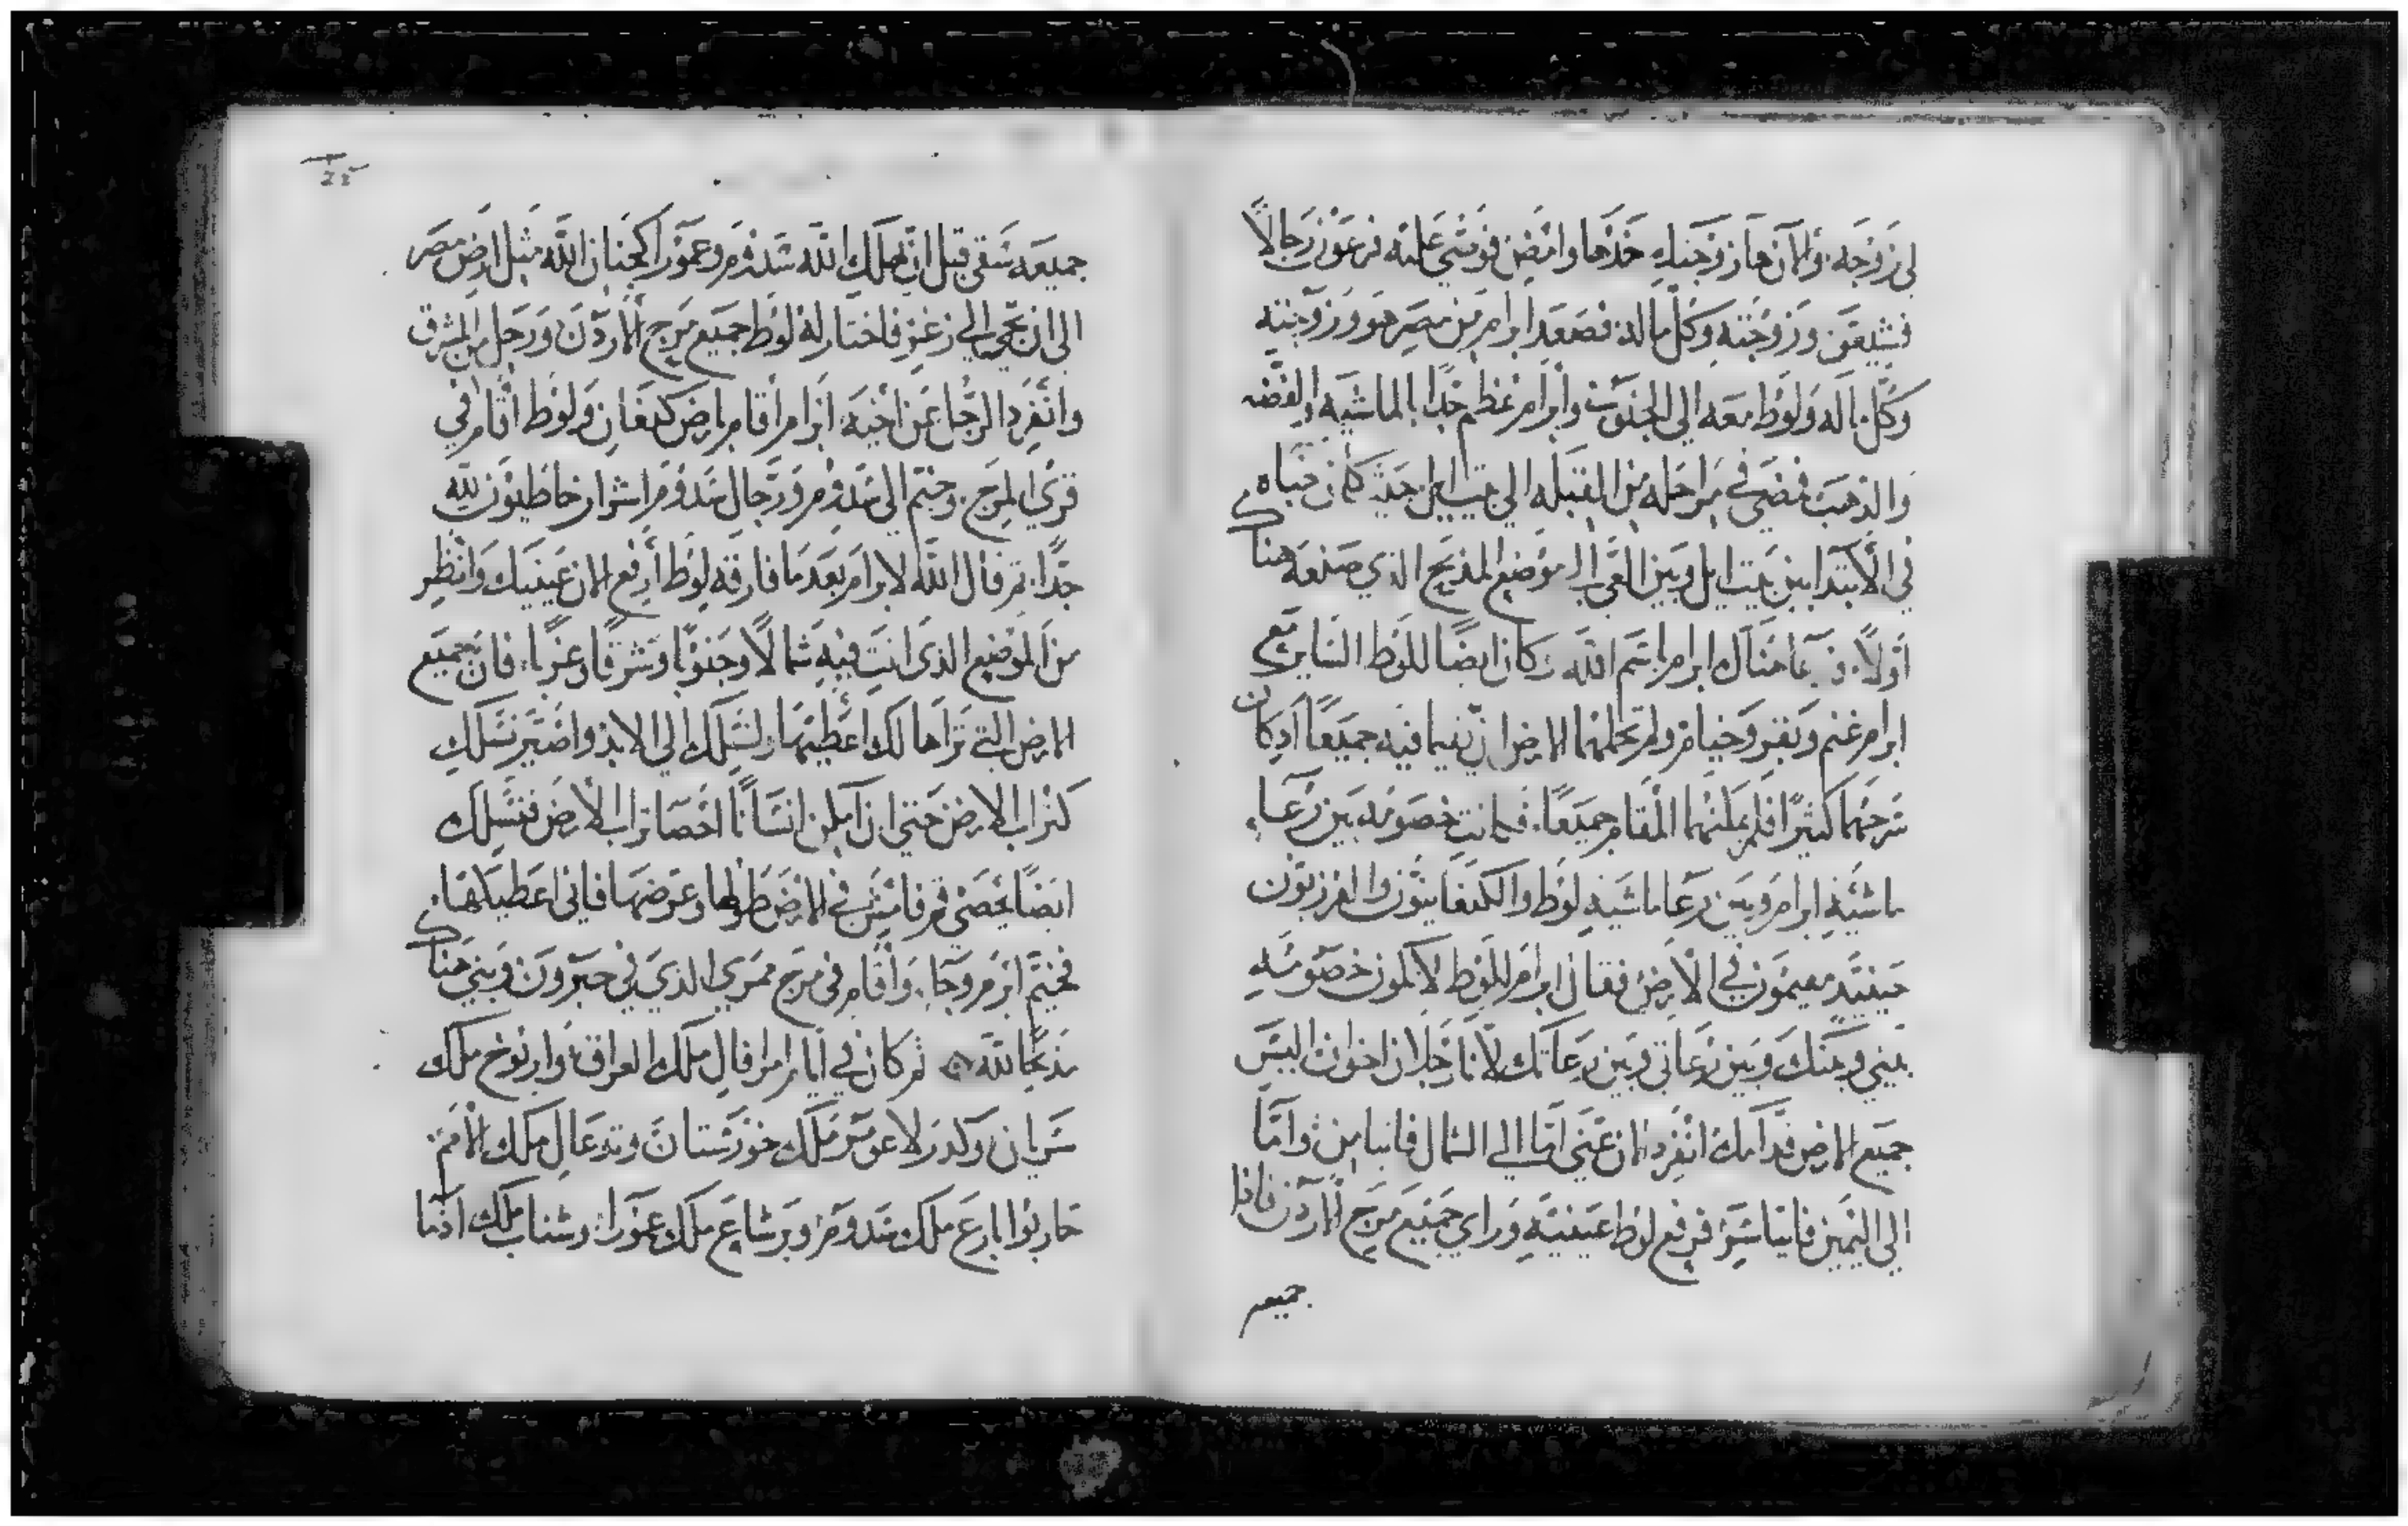 لي زوجه والان هازوجتك خذها وامض فوصي عليه فرعون رجالا
فشيعون وزوجته وكل ماله فصعد ابرام من مصر هو وزوجته
وكل ماله ولوط معه الي الجنوب وابرام عظم جدا بالماشيه والفضه
والذهب فمضي في مراحله من القبله الي بيت ايل حيث كان خباه
في الابتدا بين بيت ايل وبين العي الي موضع المذبح الذي صنعه هناك
اولا ودعا هناك ابرام باسم الله وكان ايضا للوط الساير مع
ابرام غنم وبقر وخيام ولم تحملهما الارض ان يقيما فيه جميعا اذ كان
سرحهما كثيرا فلم يمكنهما المقام جميعا فكانت خصومه بين رعا
ماشية ابرام وبين رعا ماشية لوط والكنعانيون والفرزيون
حينيد مقيمون في الارض فقال ابرام للوط لا تكون خصومه
بيني وبينك وبين رعاتي وبين رعاتك لانا رجلان اخوان اليس
جميع الارض قدامك انفرد الان عني اما الي الشمال فاتيامن واما
الي اليمين فاتياسر فرفع لوط عينيه وراي جميع مرج الاردن فاذا
جميعه
جميعه سقي قبل ان يهلك الله سدوم وعمورا كجنان الله مثل ارض مصر
الي ان تجي الي زغر فاختار له لوط جميع مرج الاردن ورحل من المشرق
وانفرد الرجل عن اخيه ابرام اقام بارض كنعان ولوط اقام في
قري المرج وخيم الي سدوم ورجال سدوم اشرار خاطيون لله
جدا ثم قال الله لابرام بعد ما فارقه لوط ارفع الان عينيك وانظر
من الموضع الذي انت فيه شمالا وجنوبا وشرقا وغربا فان جميع
الارض التي تراها لك اعطيها ولنسلك الي الابد واصير نسلك
كتراب الارض حتي ان امكن انسانا احصا تراب الارض فنسلك
ايضا يحصي قم فامش في الارض طولها وعرضها فاني اعطيكها
فخيم ابرم وجا واقام في مرج ممري الذي في حبرون وبني هناك
مذبحا لله ثم كان في ايام امرافال ملك العراق واريوخ ملك
سريان وكدرلاعومر ملك خوزستان وتدعال ملك الامم
حاربوا بارع ملك سدوم وبرشاع ملك عمورا وشناب ملك ادما